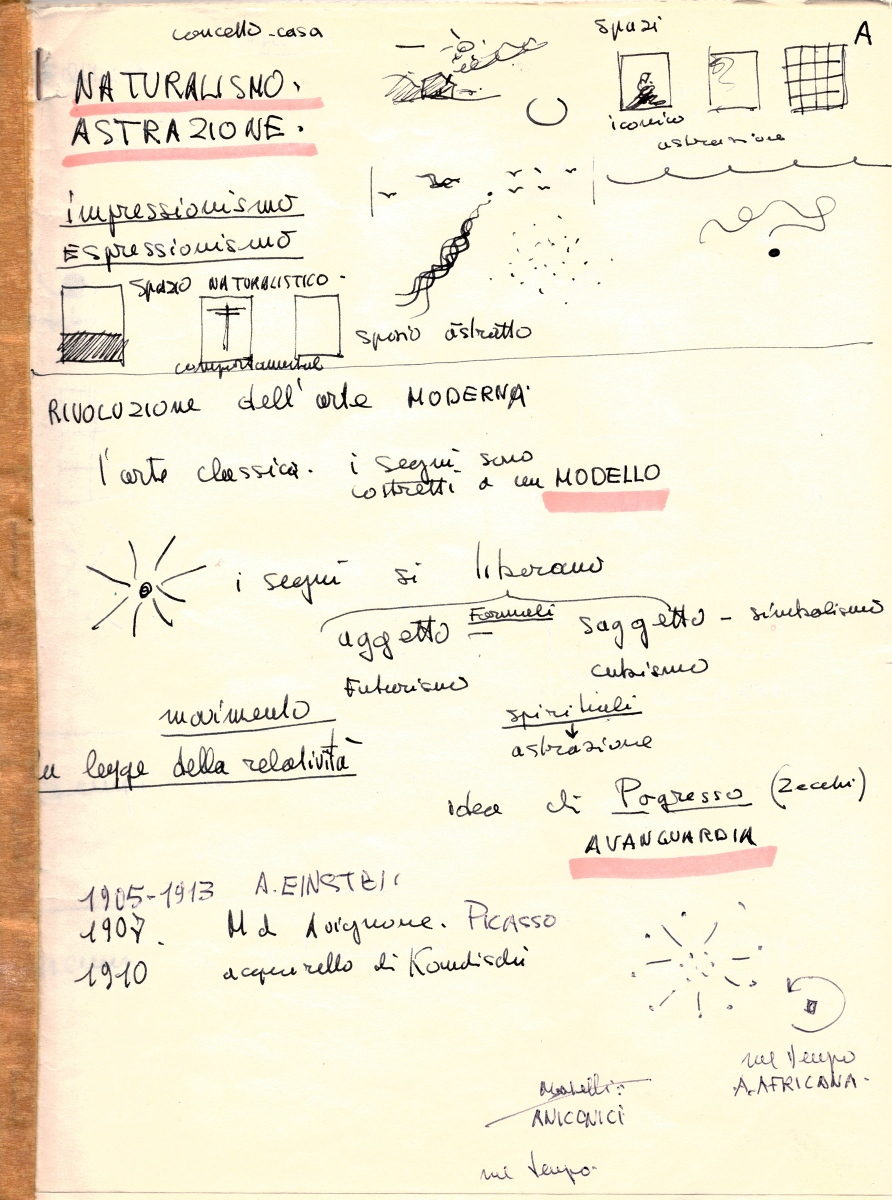 concetto-casa
spazi
A
NATURALISMO.
ASTRAZIONE.
iconico
astrazione
impressionismo
Espressionismo
spazio NATURALISTICO.
spazio astratto
RIVOLUZIONE dell'arte MODERNA
l'arte classica. i segni sono
costretti a un MODELLO
i segni si liberano
Formali
oggetto
soggetto - simbolismo
Futurismo
cubismo
movimento
spirituali
astrazione
la legge della relatività
idea di Pogresso (Zecchi)
AVANGUARDIA
1905-1913 A. EINSTEI
1907. M d Avignone. PICASSO
1910 acquerello di Kondischi
nel tempo
A. AFRICANA.
ANICONICI
nel tempo.